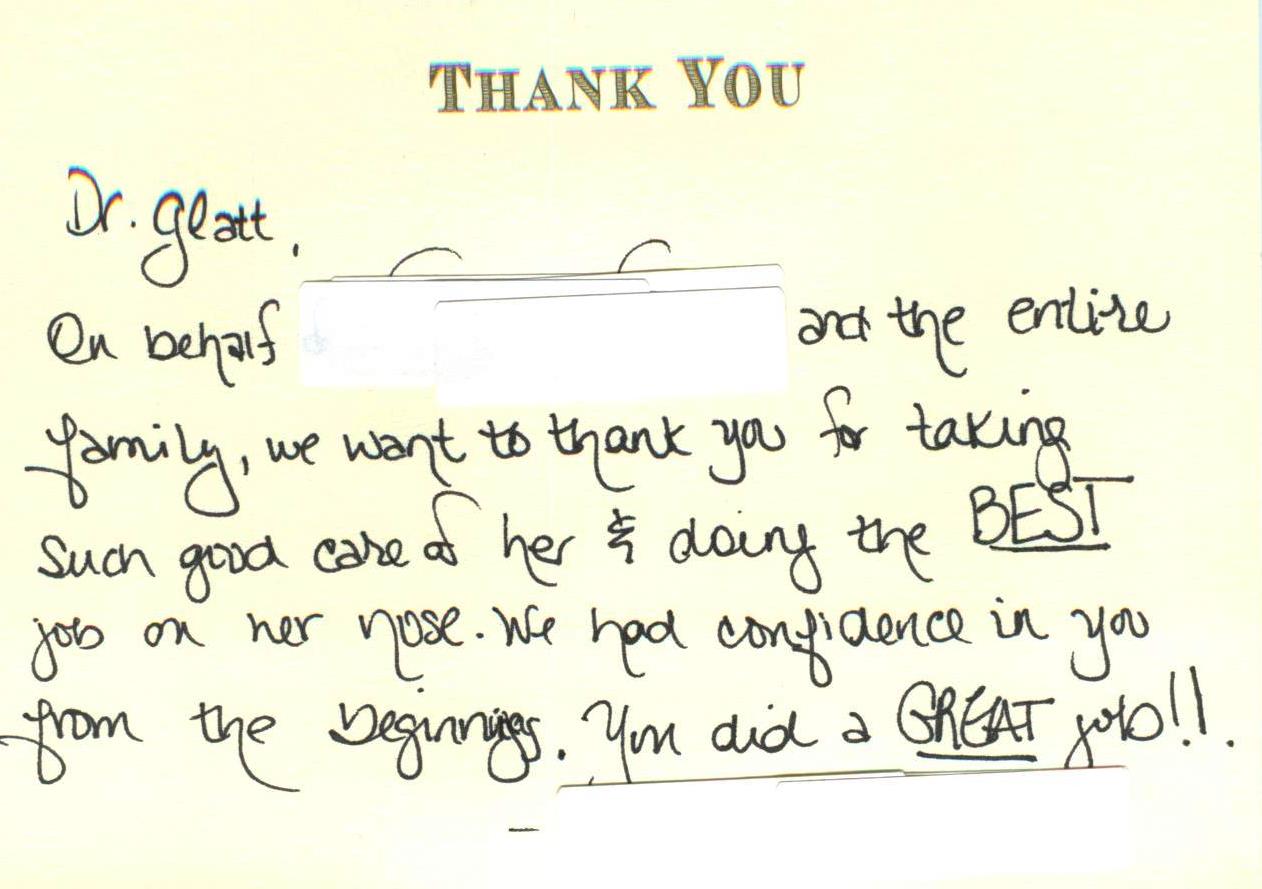 THANK YOU
Dr. Glatt,
On behalf and the entire
family, we want to thank you for taking
such good care of her & doing the BEST
job on her nose. We had confidence in you
from the beginning. You did a GREAT job!!.
–